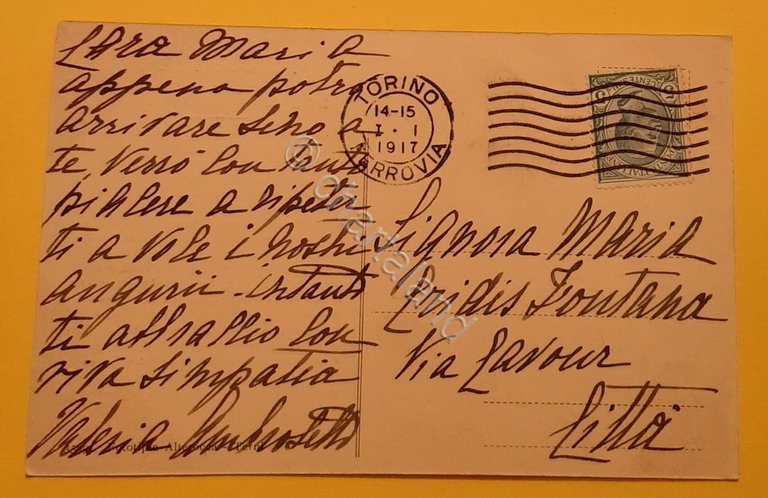 Cara Maria
appena potrò
arrivare sino a
te, verrò con tanto
piacere a ripeter
ti a voce i nostri
auguri - intanto
ti abbraccio con
viva simpatia
Valeria
TORINO
14-15
I · I
1917
FERROVIA
Signora Maria
Fontana
Via Cavour
Città
© cartaland